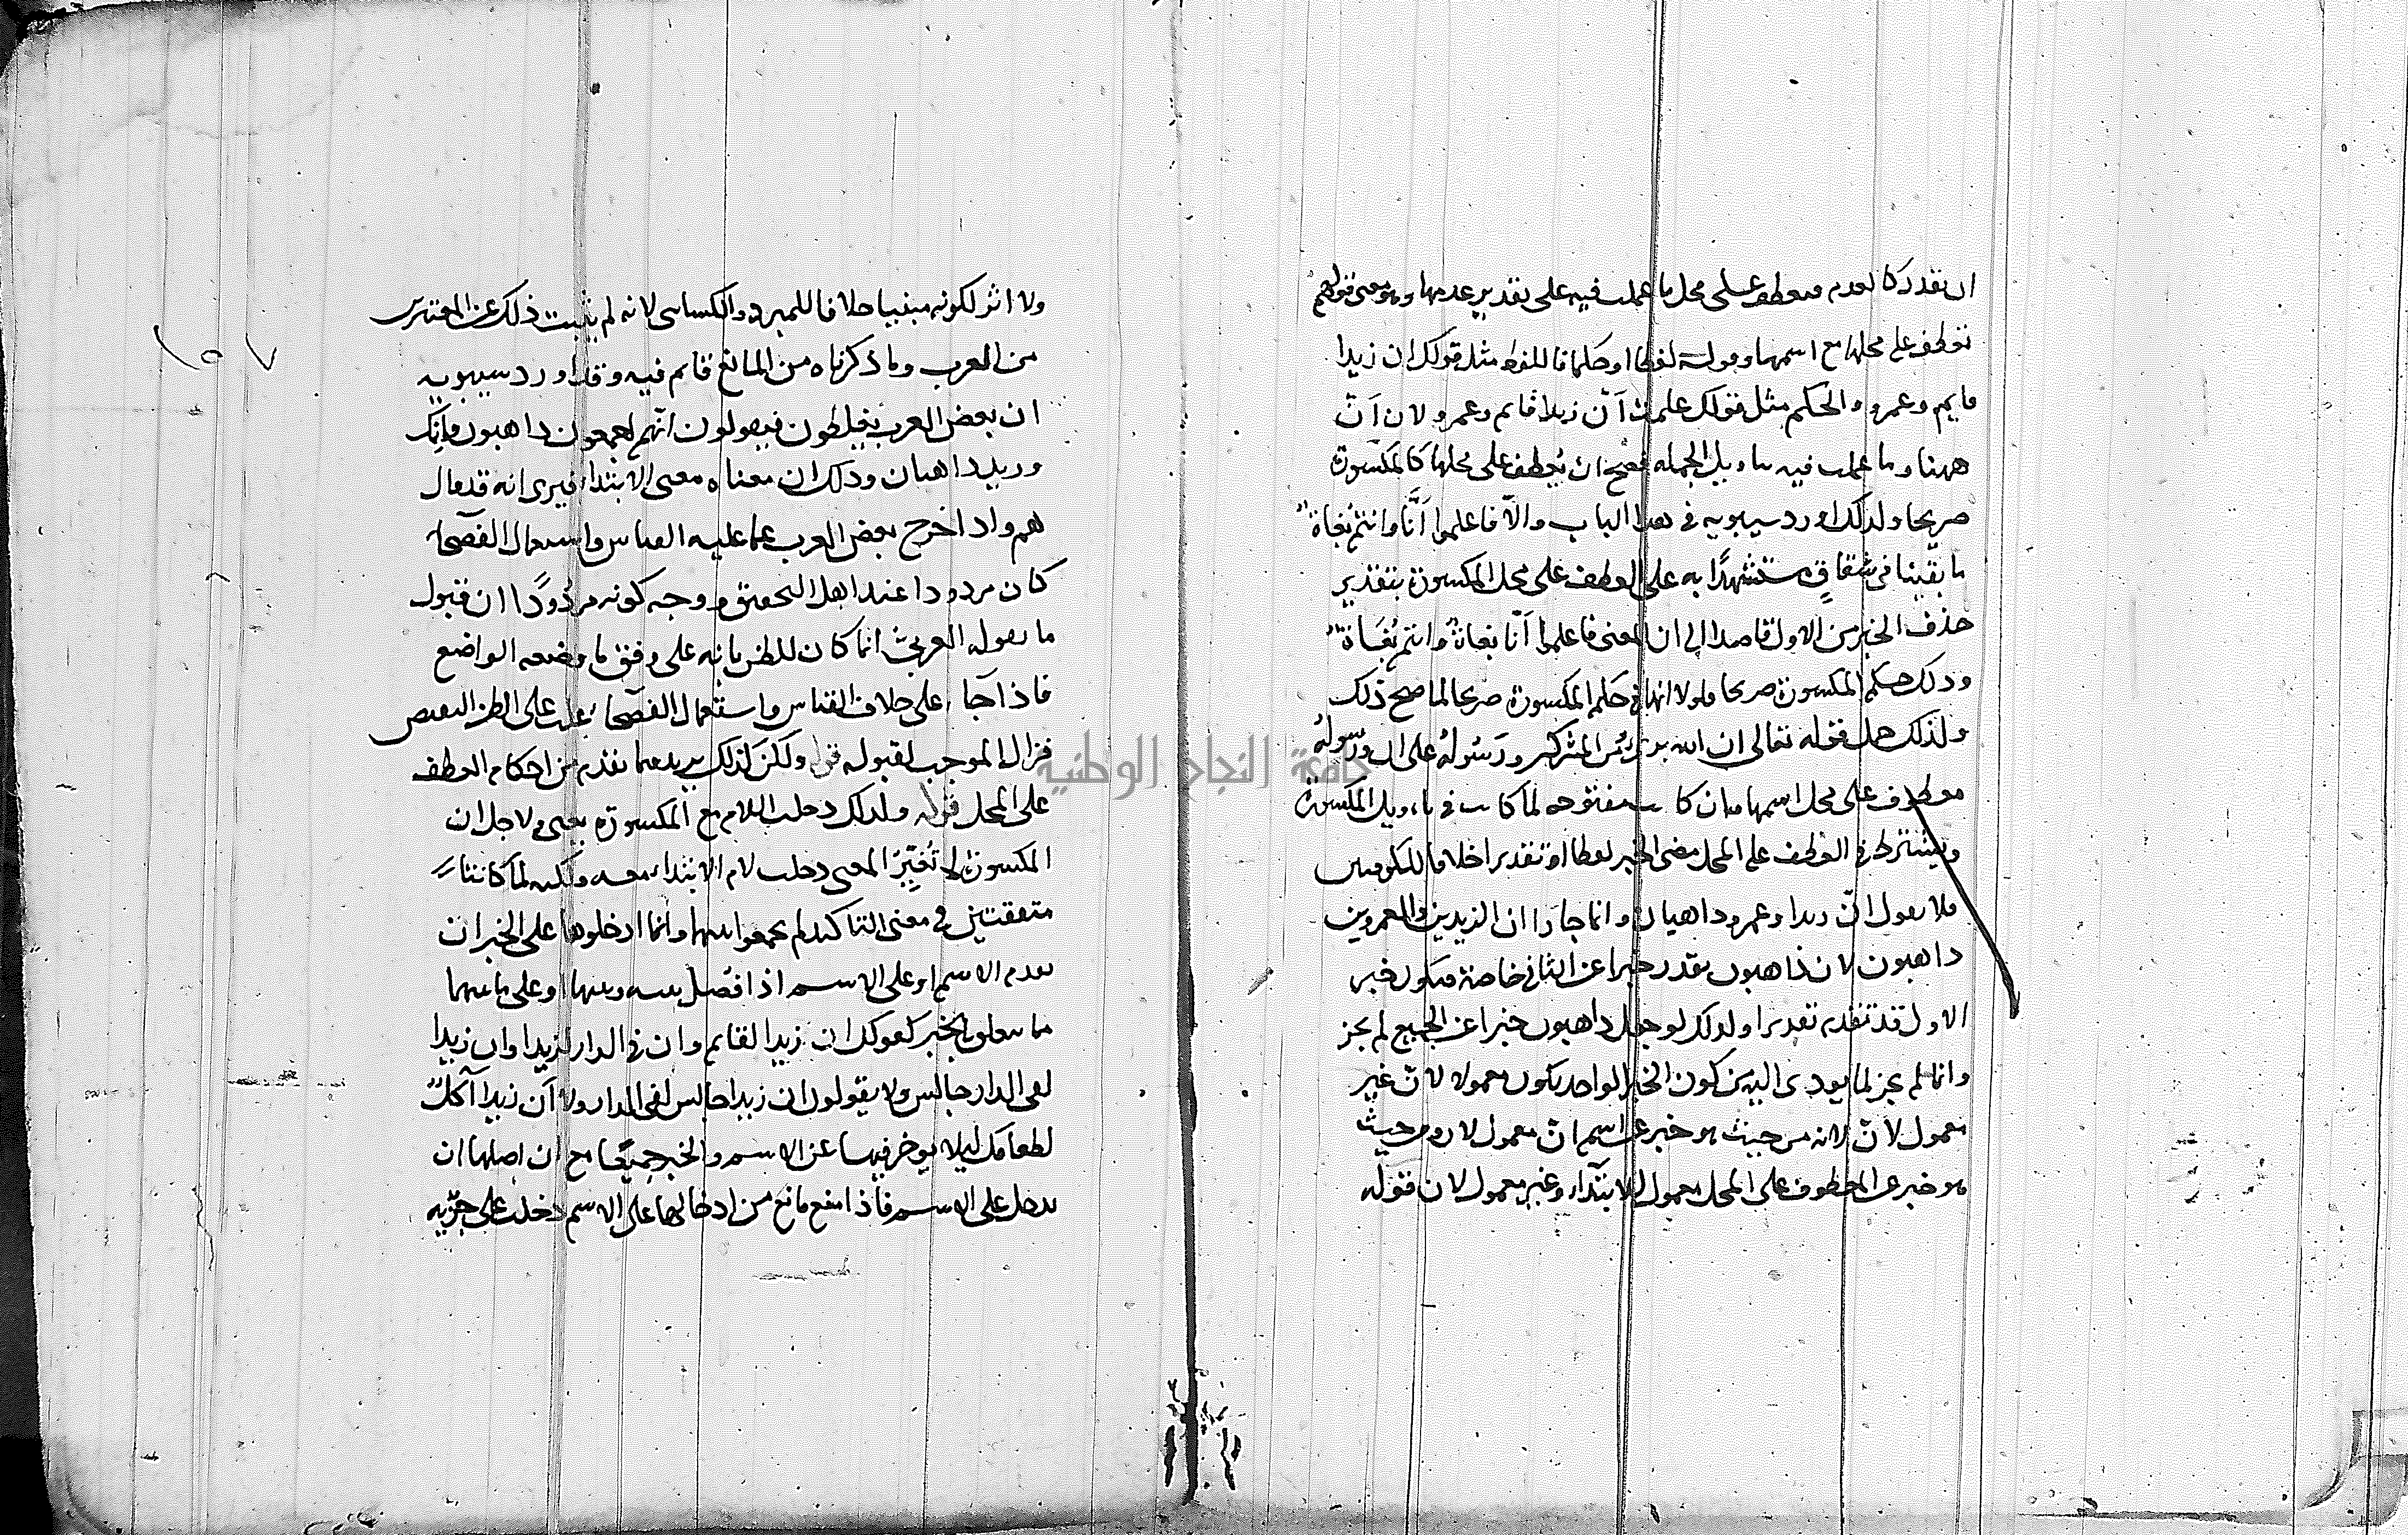 ان تقدر كالعدم فيعطف على محل ما عملت فيه على تقدير عدمها وهو معنى قولهم
نعطف على محلها مع اسمها وقوله لفظا او حكما فاللفظ مثل قولك ان زيدا
قايم وعمرو والحكم مثل قولك علمت اَنّ زيدا قايم وعمرو لان اَنّ
ههنا وما عملت فيه بتاويل الجمله فصح ان يُعطف على محلها كالمكسورة
صريحا ولذلك اورد سيبويه في هذا الباب والّا فاعلموا اَنَّا وانتم بُغاةٌ
ما بقينا في شقاقٍ مستشهدًا به على العطف على محل المكسورة بتقدير
حذف الخبر من الاول قاصدا الى ان المعنى فاعلموا اَنّا بغاةٌ وانتم بُغَاةٌ
وذلك حكم المكسورة صريحا ولولا انها في حكم المكسورة صريحا لما صح ذلك
ولذلك حمل قوله تعالى ان الله بريءٌ من المشركين ورَسُولُهُ على ان ورسولُهُ
معطوف على محل اسمها وان كانت مفتوحه لما كانت في تاويل المكسورة
ويشترط في العطف على المحل مضي الخبر لفظا او تقديرا خلافا للكوفيين
فلا تقول انّ زيدا وعمرو ذاهبان وانما جاز ان الزيدين والعمروين
ذاهبون لان ذاهبون يقدر خبرا عن الثاني خاصة فيكون خبر
الاول قد تقدم تقديرا ولذلك لو جعل ذاهبون خبرا عن الجميع لم يجز
وانما لم يجز لما يودي اليه من كون الخبر الواحد يكون معمولا لانّ غير
معمول لانّ لانه من حيث هو خبر عن اسم انّ معمول لان ومن حيث
هو خبر عن المعطوف على المحل معمول للابتداء وغير معمول لان قوله
ولا اثر لكونه مبنيا خلافا للمبرد والكساى لانه لم يثبت ذلك عن المعتبرين
من العرب وما ذكرناه من المانع قايم فيه وقد اورد سيبويه
ان بعض العرب يغلطون فيقولون انّهم اجمعون ذاهبون وانك
وزيد ذاهبان وذلك ان معناه معنى الابتداء فيرى انه قد قال
هم واذا خرج بعض العرب عما عليه القياس واستعمال الفصحاء
كان مردودا عند اهل التحقيق ووجه كونه مردُودًا ان قبول
ما يقوله العربيّ انما كان للظن بانه على وفق ما وضعه الواضع
فاذا جاء على خلاف القياس واستعمال الفصحاء غلب على الظن النقيض
فزال الموجب لقبوله قوله ولكنّ كذلك يريد فيما تقدم من احكام العطف
على المحل قوله ولذلك دخلت اللام مع المكسورة يعني ولاجل ان
المكسورة لم تُغيِّر المعنى دخلت لام الابتداء معه ولكنه لما كانتا
متفقتين في معنى التاكيد لم يجمعوا بينهما وانما ادخلوها على الخبر ان
تقدم الاسم او على الاسم اذا فُصل بينه وبينها او على ما بينهما
مما يتعلق بالخبر كقولك ان زيدا لقايم وان في الدار لزيدا وان زيدا
لفي الدار جالس ولا يقولون ان زيدا جالس لفي الدار ولا اَن زيدا آكلٌ
لطعامك ليلا يوخر فيها عن الاسم والخبر جميعًا مع ان اصلها ان
تدخل على الاسم فاذا منع مانع من ادخالها على الاسم دخلت على جزيه
١٥٧
جامعة النجاح الوطنية